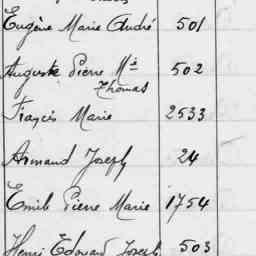 Eugène Marie André 501
Auguste Pierre Mie 502
Thomas
Francis Marie 2533
Armand Joseph 24
Emile Pierre Marie 1754
Henri Edouard Joseph 503